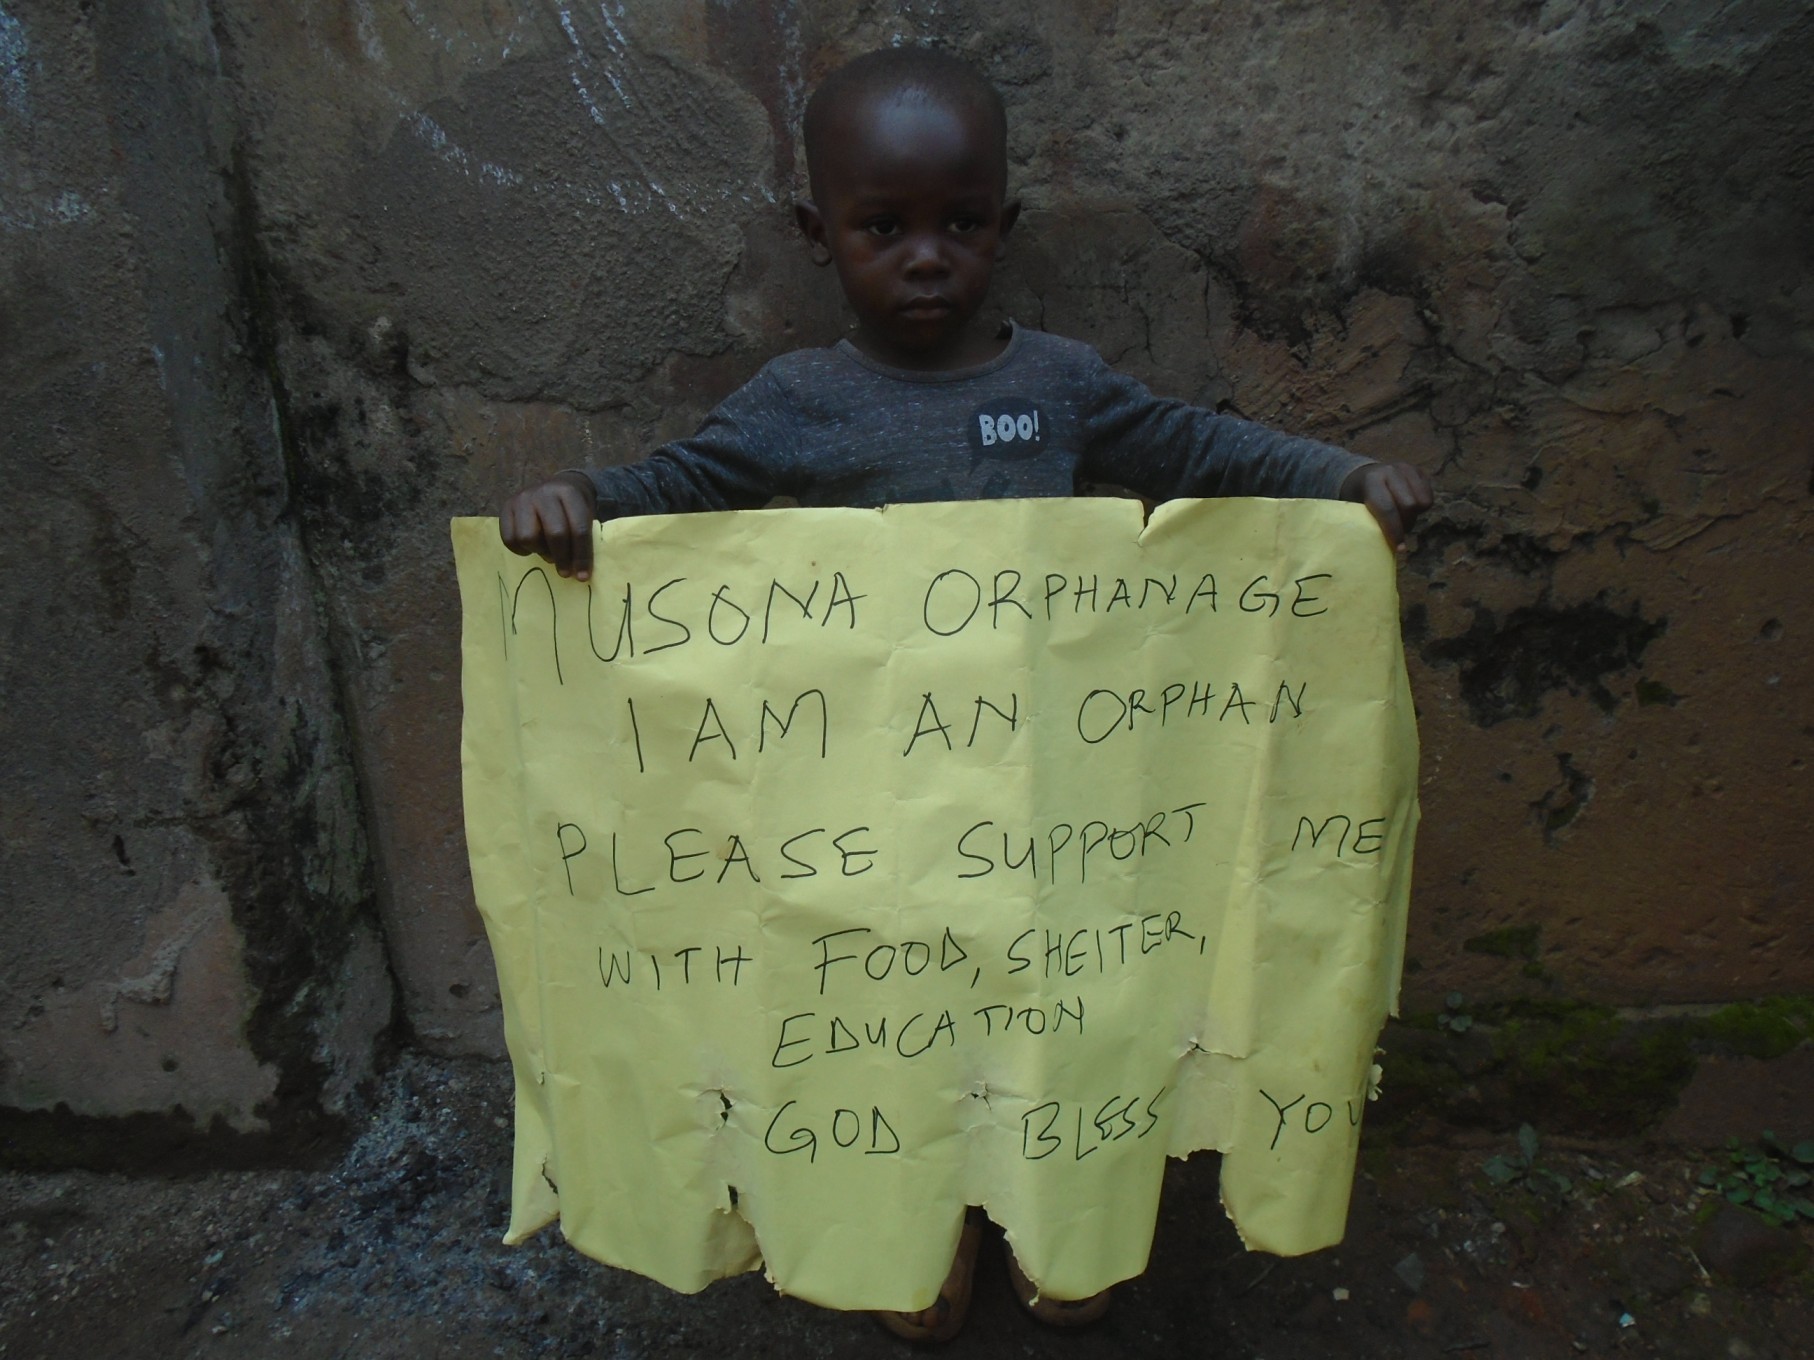 BOO!
MUSONA ORPHANAGE
I AM AN ORPHAN
PLEASE SUPPORT ME
WITH FOOD, SHELTER,
EDUCATION
GOD BLESS YOU